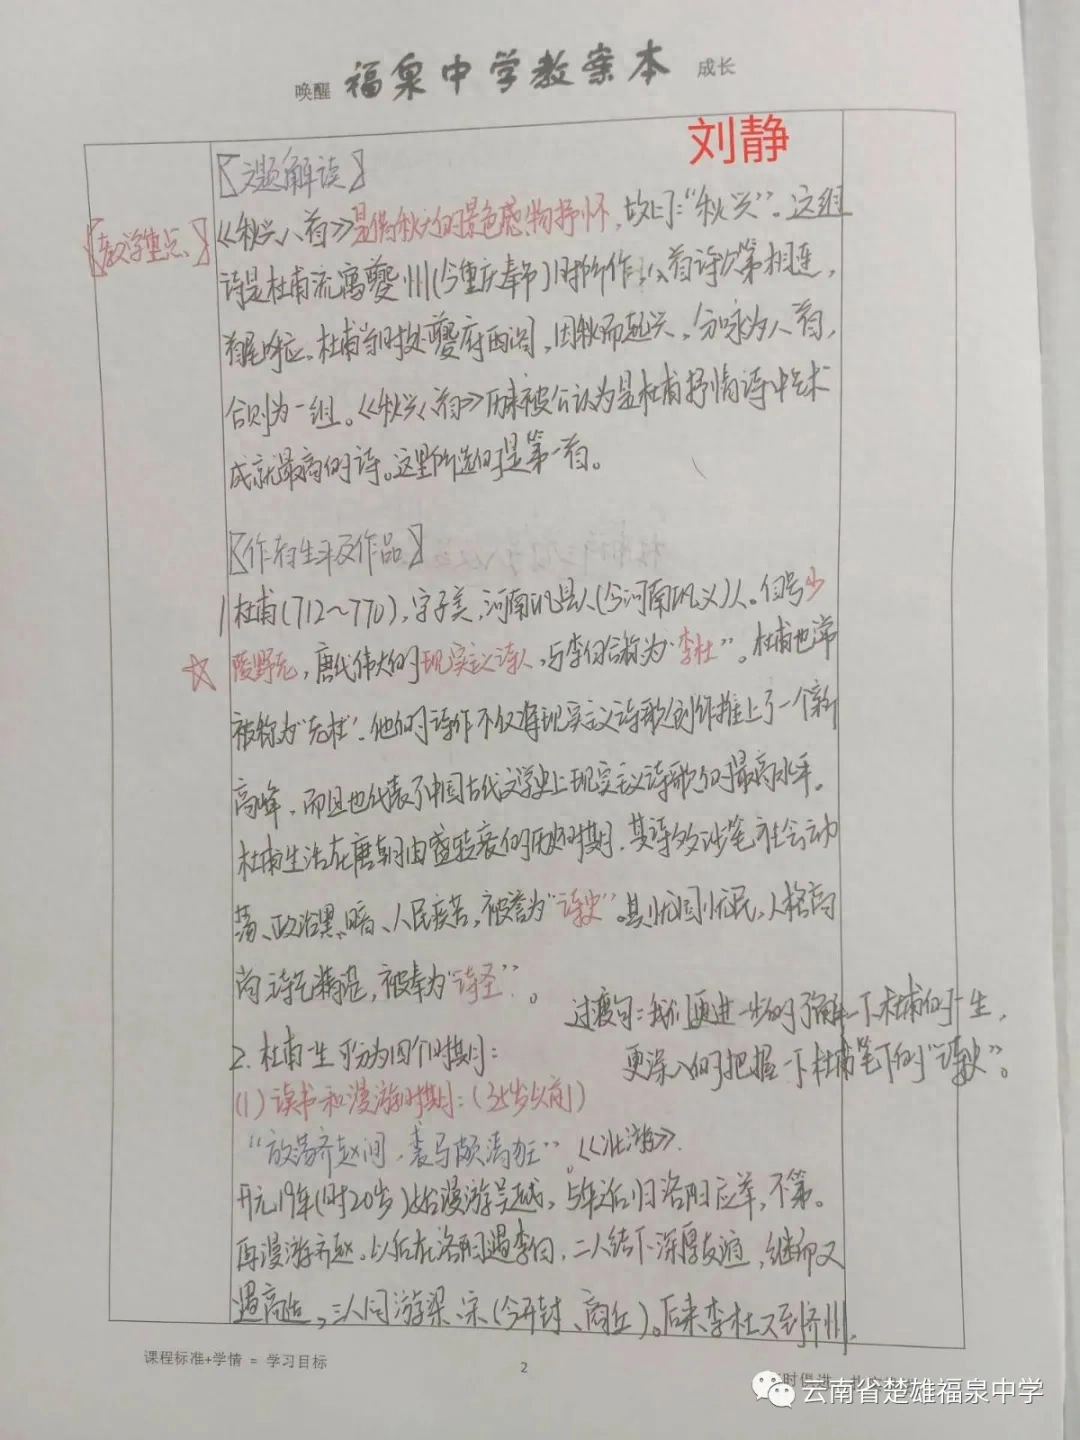 唤醒 福泉中学教案本 成长
刘静
【文题解读】
【教学重点】
《秋兴八首》是借秋天的景色感物抒怀，故曰："秋兴"。这组
诗是杜甫流寓夔州(今重庆奉节)时所作，八首诗次第相连，
首尾呼应。杜甫当时处夔府西阁，因秋而起兴，分咏为八首，
合则为一组。《秋兴八首》历来被公认为是杜甫抒情诗中艺术
成就最高的诗。这里所选的是第一首。
【作者生平及作品】
1 杜甫(712~770)，字子美，河南巩县人(今河南巩义)人。自号少
陵野老，唐代伟大的现实主义诗人，与李白合称为"李杜"。杜甫也常
被称为"老杜"。他的诗作不仅将现实主义诗歌创作推上了一个新
高峰，而且也代表了中国古代文学史上现实主义诗歌的最高水平。
杜甫生活在唐朝由盛转衰的历史时期，其诗多涉笔社会动
荡、政治黑暗、人民疾苦，被誉为"诗史"。其忧国忧民，人格高
尚，诗艺精湛，被奉为"诗圣"。
过渡句：我们更进一步的了解一下杜甫的一生，
更深入的把握一下杜甫笔下的"诗史"。
2. 杜甫一生可分为四个时期：
(1) 读书和漫游时期：(35岁以前)
"放荡齐赵间，裘马颇清狂"。《壮游》.
开元19年(时20岁)始漫游吴越，5年之后归洛阳应举，不第。
再漫游齐赵。以后在洛阳遇李白，二人结下深厚友谊，继而又
遇高适，三人同游梁、宋(今开封、商丘)。后来李杜又到齐州，
课程标准+学情 = 学习目标
2
云南省楚雄福泉中学